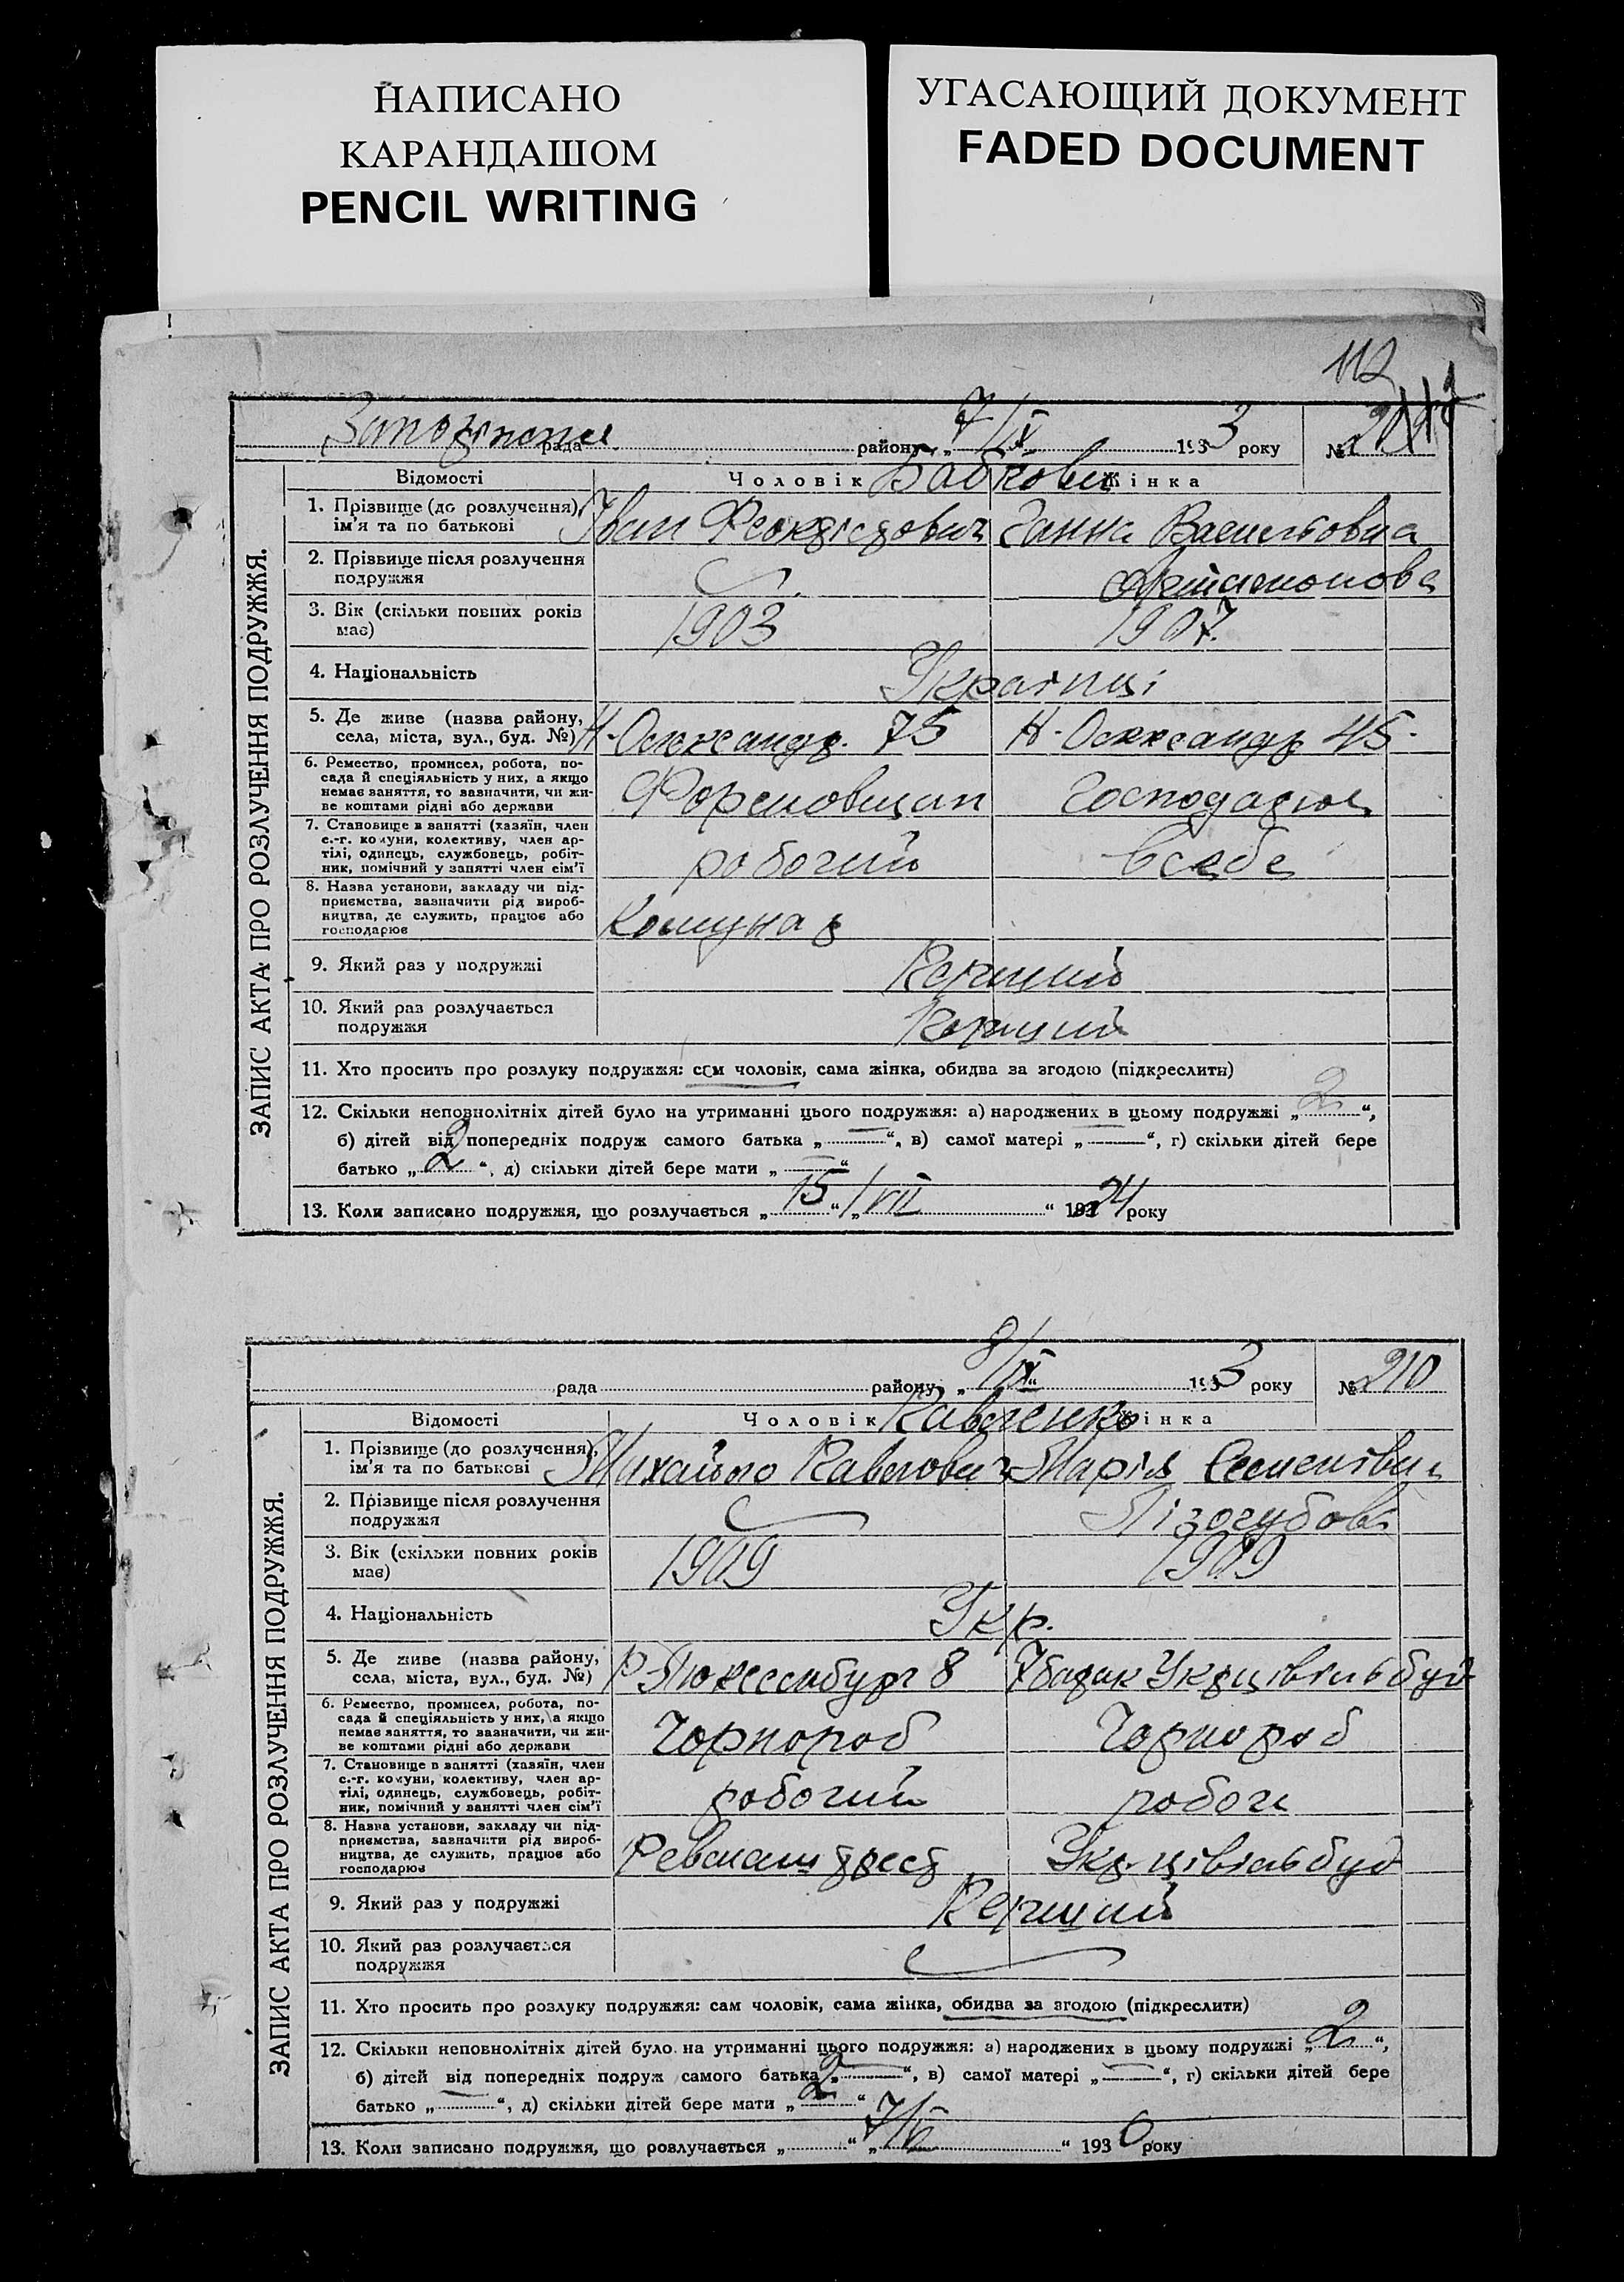 НАПИСАНО
КАРАНДАШОМ
PENCIL WRITING
УГАСАЮЩИЙ ДОКУМЕНТ
FADED DOCUMENT
112
рада району „ 7/IX 1933 року №
ЗАПИС АКТА ПРО РОЗЛУЧЕННЯ ПОДРУЖЖЯ.
Відомості Чоловік Жінка
Бабкови
1. Прізвище (до розлучення), ім'я та по батькові Іван Феоктістович Ганна Васильовна
2. Прізвище після розлучення
подружжя Артамонова
3. Вік (скільки повних років
має) 1903 1907
4. Національність Українці
5. Де живе (назва району,
села, міста, вул., буд. №) Н-Олександр. 75 Н-Олександр 45
6. Ремество, промисел, робота, по-
сада й спеціяльність у них, а якщо
немає заняття, то зазначити, чи жи-
ве коштами рідні або держави Формовщик Господарює
7. Становище в занятті (хазяїн, член
с.-г. комуни, колективу, член ар-
тілі, одинець, службовець, робіт-
ник, помічний у занятті член сім'ї робочий в себе
8. Назва установи, закладу чи під-
приємства, зазначити рід вироб-
ництва, де служить, працює або
господарює Комунар
9. Який раз у подружжі Перший
10. Який раз розлучається
подружжя Перший
11. Хто просить про розлуку подружжя: сам чоловік, сама жінка, обидва за згодою (підкреслити)
12. Скільки неповнолітніх дітей було на утриманні цього подружжя: а) народжених в цьому подружжі „ 2 “,
б) дітей від попередніх подруж самого батька „ — “, в) самої матері „ — “, г) скільки дітей бере
батько „ 2 “, д) скільки дітей бере мати „ — “
13. Коли записано подружжя, що розлучається „ 15 “ „ VII “ 1924 року
рада району „ 8/IX 1933 року № 210
ЗАПИС АКТА ПРО РОЗЛУЧЕННЯ ПОДРУЖЖЯ.
Відомості Чоловік Жінка
Кавсенко
1. Прізвище (до розлучення),
ім'я та по батькові Михайло Павлович Марія Семенівна
2. Прізвище після розлучення
подружжя Лізогубова
3. Вік (скільки повних років
має) 1909 1909
4. Національність Укр.
5. Де живе (назва району,
села, міста, вул., буд. №) Р-Люксембург 8 7 барак Укрцівільбуд
6. Ремество, промисел, робота, по-
сада й спеціяльність у них, а якщо
немає заняття, то зазначити, чи жи-
ве коштами рідні або держави Чорнороб Чорнороб
7. Становище в занятті (хазяїн, член
с.-г. комуни, колективу, член ар-
тілі, одинець, службовець, робіт-
ник, помічний у занятті член сім'ї робочий робоча
8. Назва установи, закладу чи під-
приємства, зазначити рід вироб-
ництва, де служить, працює або
господарює трест Укрцівільбуд
9. Який раз у подружжі Перший
10. Який раз розлучається
подружжя
11. Хто просить про розлуку подружжя: сам чоловік, сама жінка, обидва за згодою (підкреслити)
12. Скільки неповнолітніх дітей було на утриманні цього подружжя: а) народжених в цьому подружжі „ 2 “,
б) дітей від попередніх подруж самого батька „ — “, в) самої матері „ — “, г) скільки дітей бере
батько „ “, д) скільки дітей бере мати „ 2 “
13. Коли записано подружжя, що розлучається „ “ „ “ 1930 року